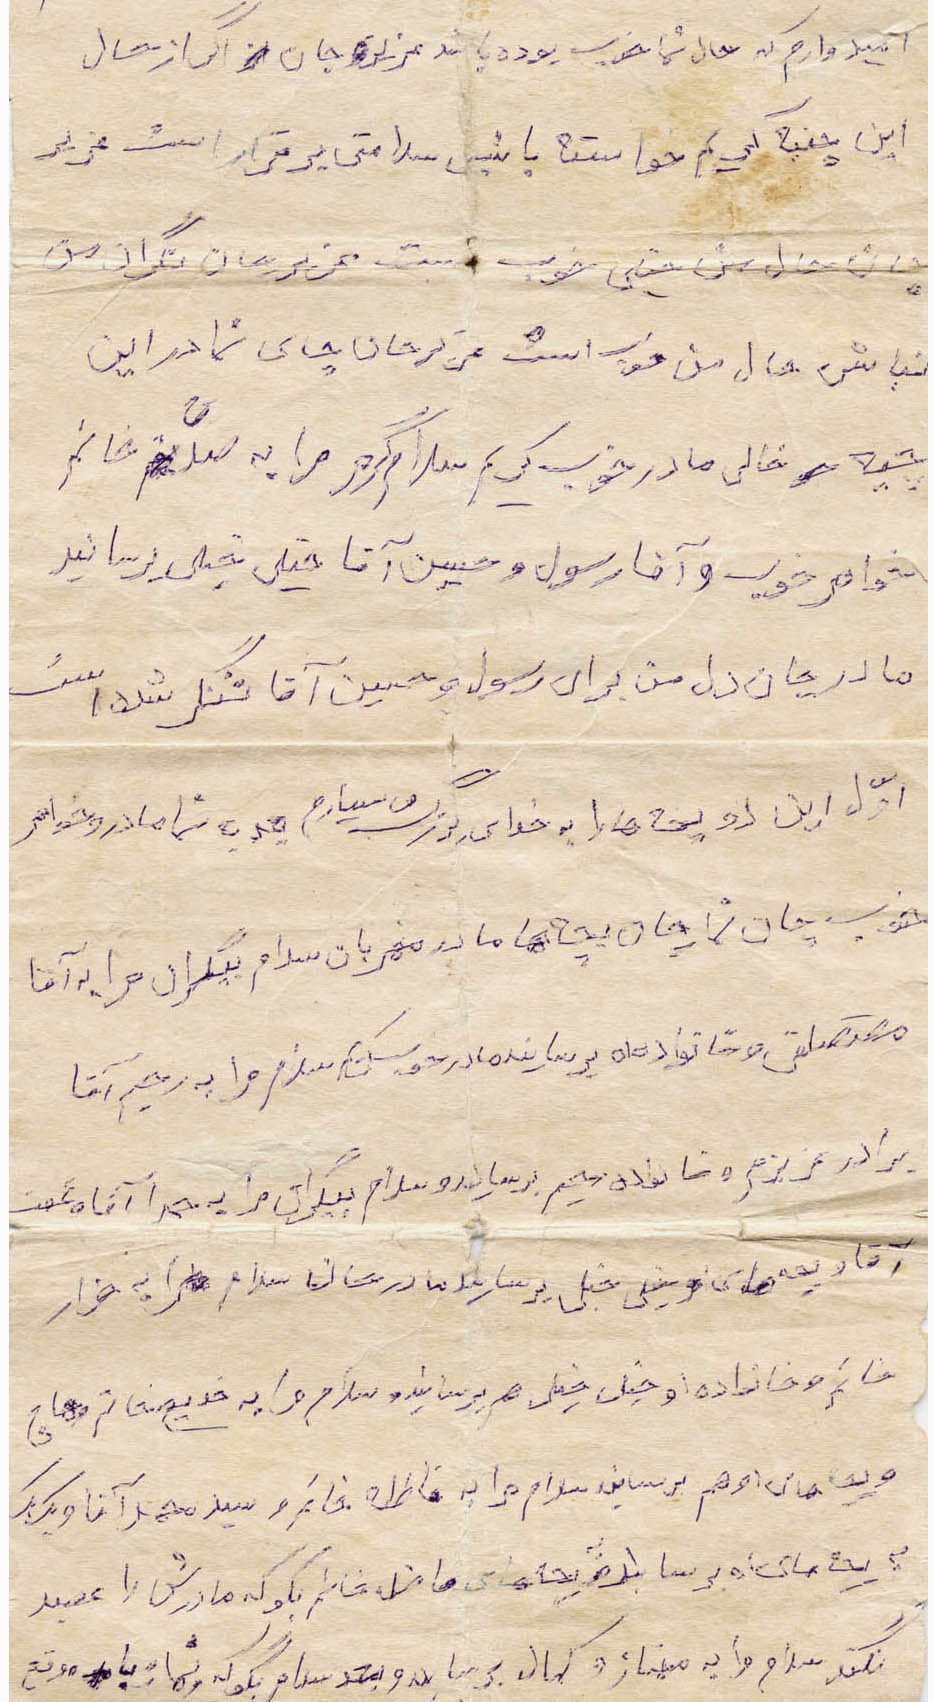 امیدوارم که حال شما خوب بوده باشد عزیز جان اگر از حال
این جنبه گیریم خواسته باشید سلامتی برقرار است عزیز
جان حال من خیلی خوب است عزیز جان نگران من
نباش حال من خوب است عزیز جان جای شما در این
جبهه خالی مادر خوب کریم سلام گرم مرا به خانم
خواهر خوب و آقا رسول و حسین آقا خیلی خیلی برسانید
مادر جان دل من برای رسول و حسین آقا تنگ شده است
اوّل این دو بچه ها را به خدای بزرگ می سپارم بعد به شما مادر و خواهر
خوب جان شما جان بچه ها مادر مهربان سلام بیکران مرا به آقا
و خانواده اه برسانید مادر خوب سلام مرا به رحیم آقا
برادر عزیزم و خانواده رحیم برسانید و سلام بیکران مرا به آقا و
آقا و بچه های او خیلی خیلی برسانید مادر جان سلام مرا به
خانم و خانواده او خیلی خیلی هم برسانید و سلام مرا به خدیج خانم و حاج
و بچه های او هم برسانید سلام مرا به فاطمه خانم و سید محمد آقا و
به بچه های او برسانید بچه های خانم بگو که مادرش را
نکند سلام مرا به و کمال برسانید و سلام بگو که شما موقع